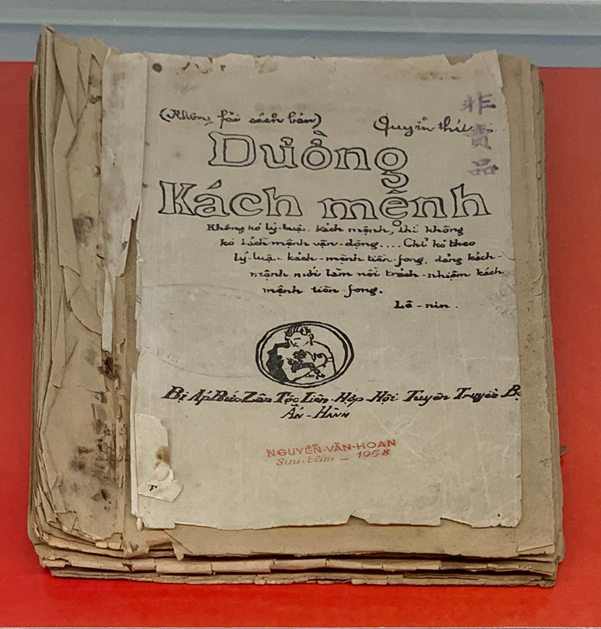 (Không fải sách bán)
Quyển thứ
非賣品
Dường
Kách mệnh
Không kó lý-luận kách mệnh, thì không
kó kách mệnh vận-động.... Chỉ kó theo
lý-luận kách-mệnh tiền-fong, đảng kách-
mệnh mới làm nổi trách-nhiệm kách
mệnh tiền-fong.
Lê-nin.
Bị Áp Bức Zân Tộc Liên-Hợp Hội Tuyên Truyền
Ấn-Hành
NGUYỄN-VĂN-HOAN
Sưu-tầm – 1958